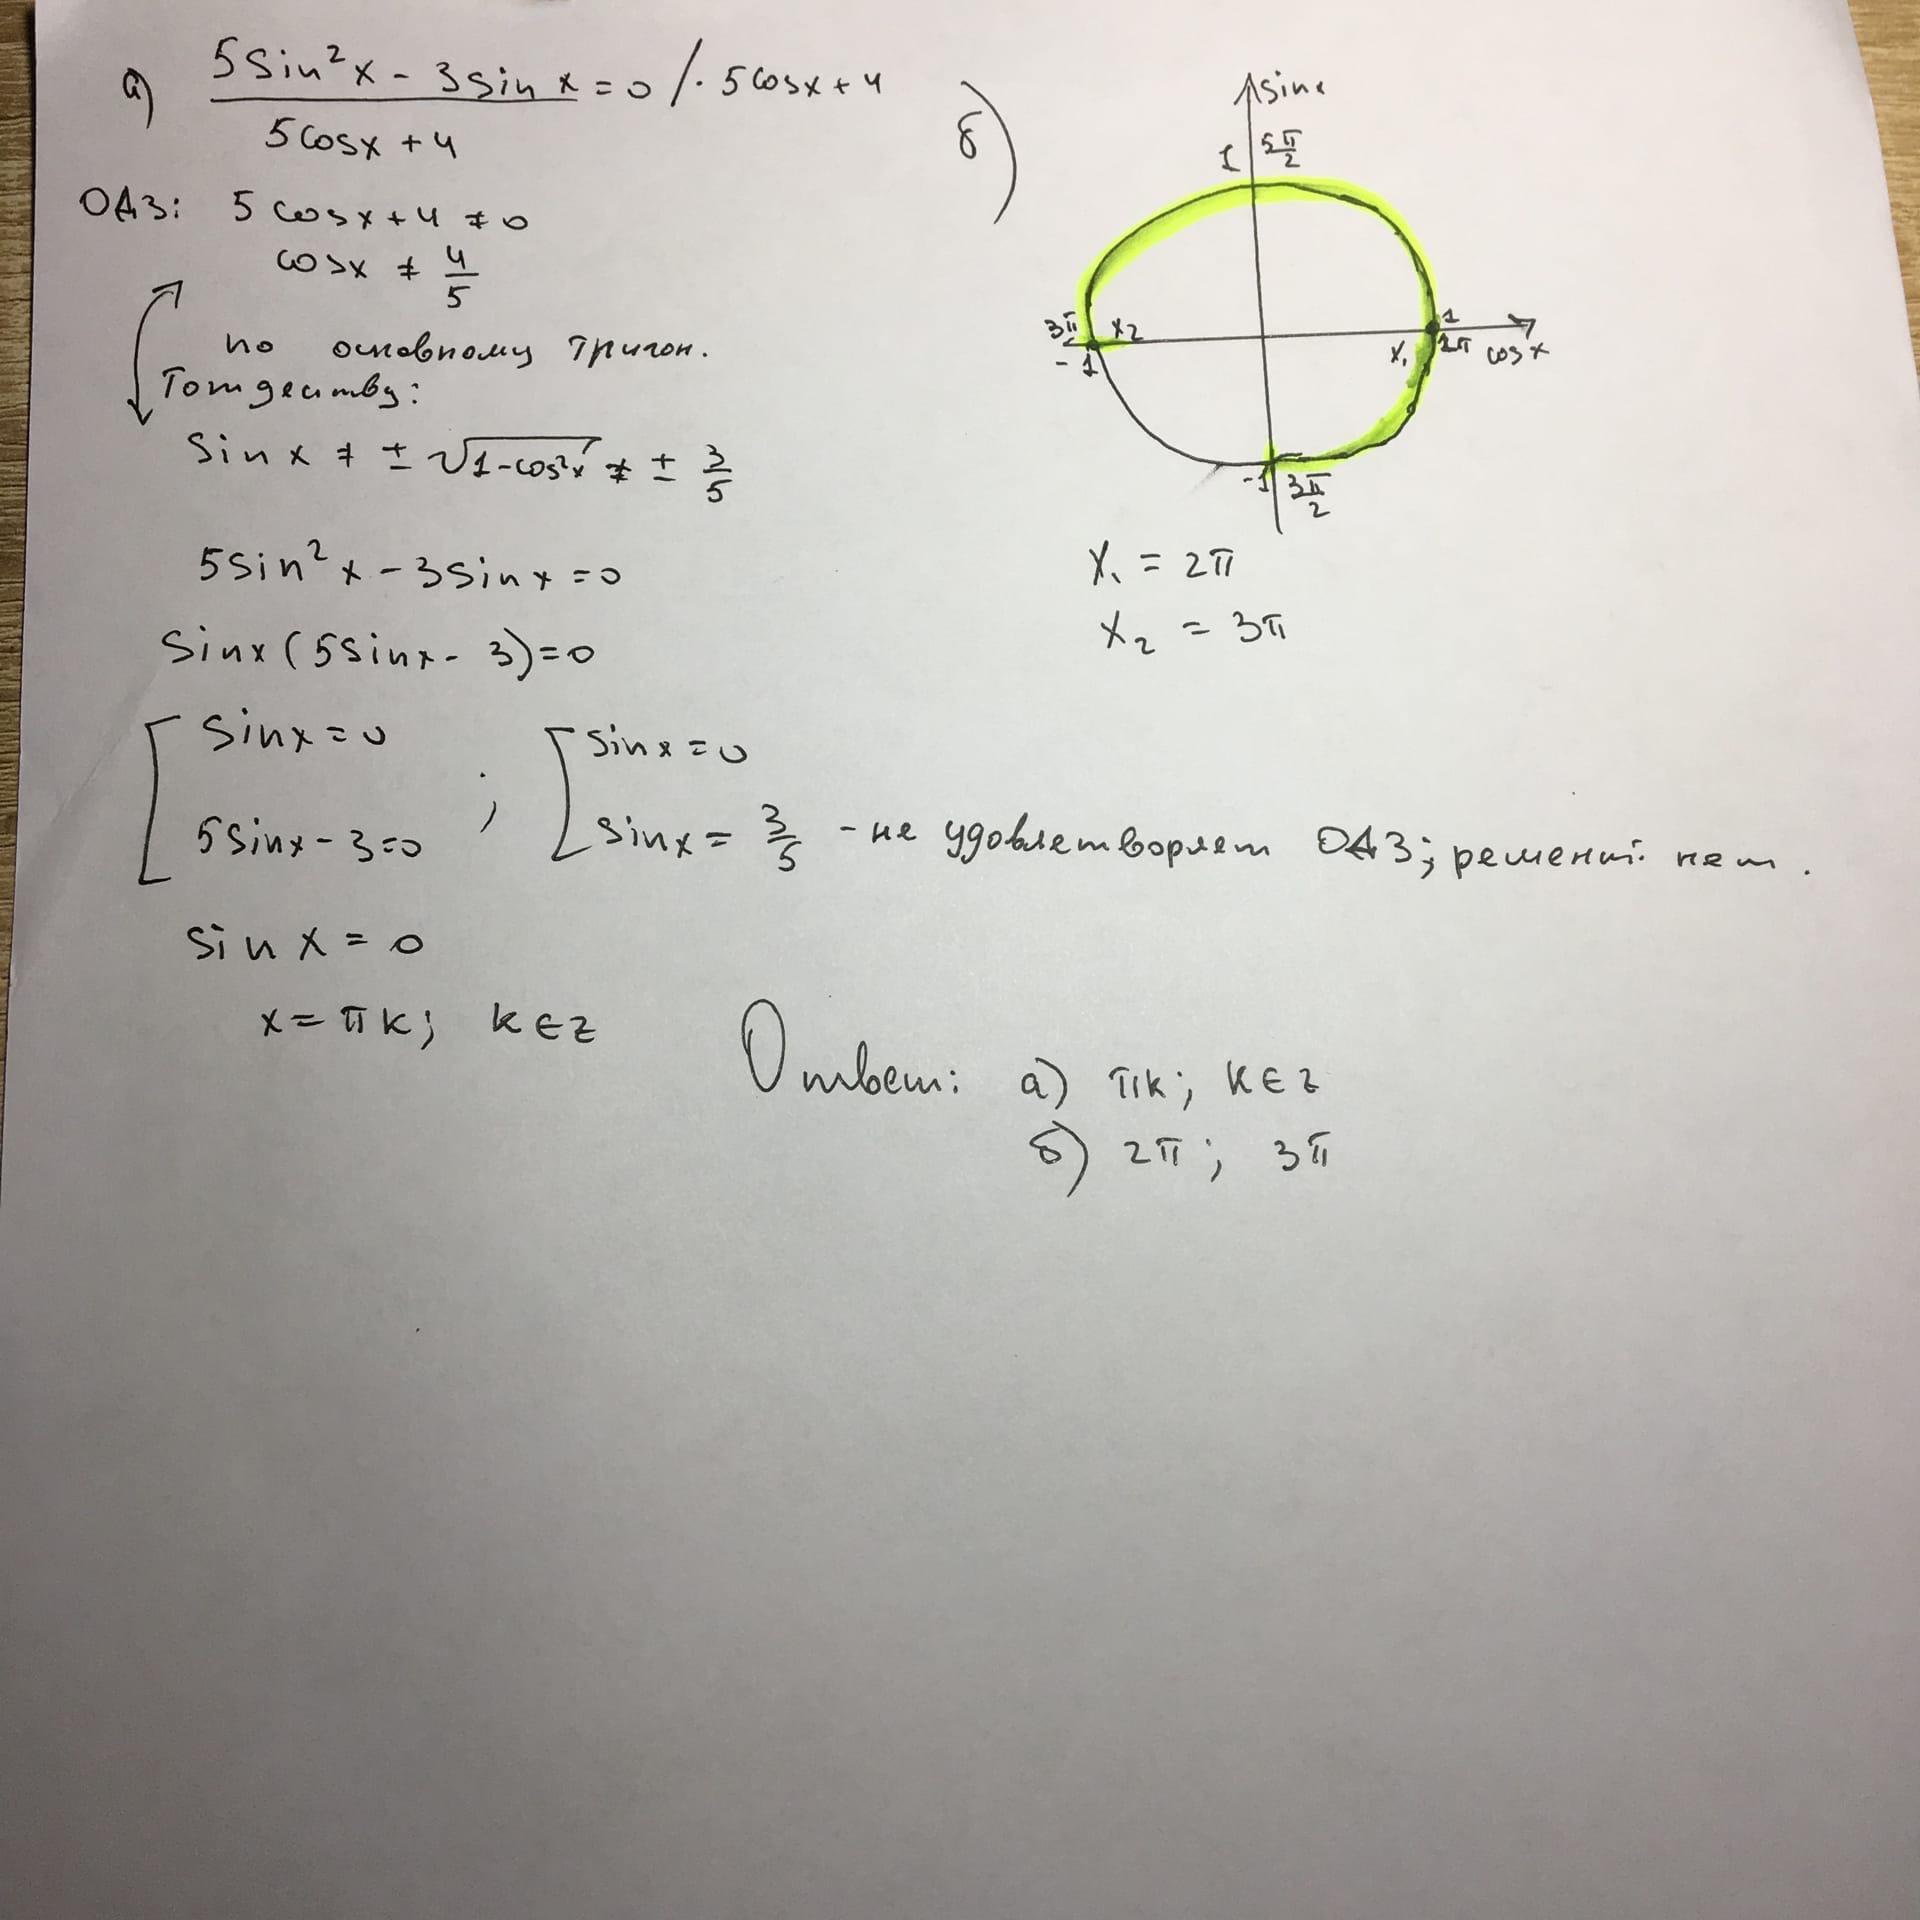 а) (5sin²x - 3sinx)/(5cosx + 4) = 0 / · 5cosx + 4
ОДЗ: 5cosx + 4 ≠ 0
cosx ≠ 4/5
по основному тригон.
Тождеству:
sinx ≠ ± √(1-cos²x) ≠ ± 3/5
5sin²x - 3sinx = 0
sinx(5sinx - 3) = 0
[ sinx = 0
5sinx - 3 = 0 ;
[ sinx = 0
sinx = 3/5 - не удовлетворяет ОДЗ; решений нет.
sinx = 0
x = πk; k∈z
б)
sinx
1 5π/2
3π x₂
-1
1
x₁ 2π cosx
-1 3π/2
x₁ = 2π
x₂ = 3π
Ответ: а) πk; k∈z
б) 2π; 3π